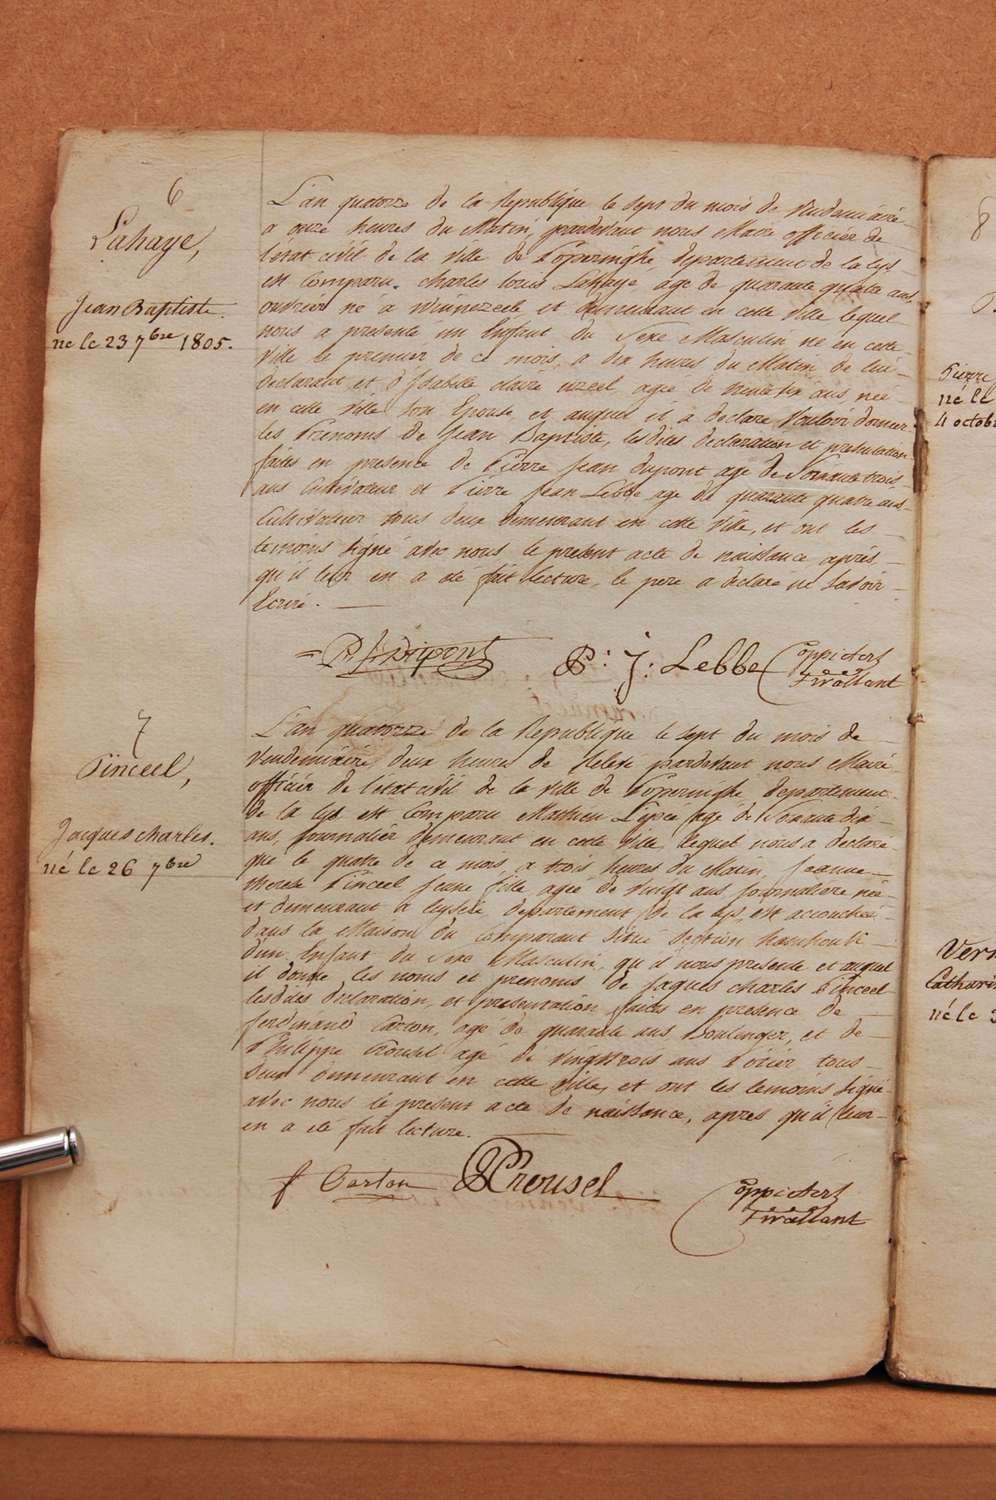 6
Lahaye,
Jean Baptiste.
né le 23 7bre 1805.
L'an quatorze de la Republique le sept du mois de Vendemiaire
a onze heures du Matin, pardevant nous Maire officier de
l'état civil de la ville de Poperinghe, departement de la Lys
est comparu Charles Louis Lahaye age de quarante quatre ans,
ouvrier né a Winnezeele et demeurant en cette ville lequel
nous a presenté un Enfant du Sexe Masculin né en cette
Ville le premier de ce mois, a dix heures du Matin de lui
declarant et d'Isabelle Claire age de ans, née
en cette Ville son Epouse, et auquel il a declare Vouloir donner
les Prenoms de Jean Baptiste, lesdites declaration et presentation
faites en presence de Pierre Jean Dupont age de Soixante trois
ans Cultivateur et Pierre Jean Lebbe age de quarante quatre ans
Cultivateur tous deux demeurant en cette Ville, et ont les
temoins signé avec nous le present acte de naissance après
qu'il leur en a été fait lecture, le pere a declare ne Savoir
Ecrire.
P. J. Dupont P: J: Lebbe
7
Pinceel,
Jacques charles.
né le 26 7bre
L'an quatorze de la Republique le sept du mois de
Vendemiaire deux heures de Relevé pardevant nous Maire
officier de l'état civil de la ville de Poperinghe departement
de la Lys est Comparu Mathieu age de Soixante dix
ans, Journalier demeurant en cette Ville, lequel nous a declaré
que le quatre de ce mois, a trois heures du Matin, Jeanne
therese Pinceel Jeune fille, agée de Vingt ans Journaliere née
et demeurant a departement de la Lys, est accouchée
dans la Maison du Comparant Situé Section
d'un Enfant du Sexe Masculin, qu'il nous presente et auquel
il donne les noms et prenoms de Jaques charles Pinceel
lesdites declaration, et presentation faites en presence de
ferdinand Carton, agé de quarante ans Boulanger, et de
Philippe Crousel agé de Vingttrois ans tous
deux demeurant en cette Ville, et ont les temoins signé
avec nous le present acte de naissance, apres qu'il leur
en a été fait lecture.
f Carton Crousel
8
né le
4 octobr
Vern
Catharin
né le 3